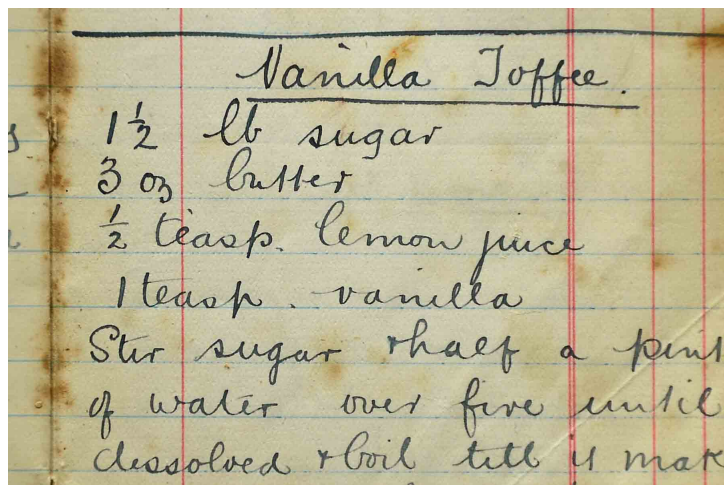 Vanilla Toffee.
1½ lb sugar
3 oz butter
½ teasp. lemon juice
1 teasp. vanilla
Stir sugar & half a pint
of water over fire until
dissolved & boil till it mak